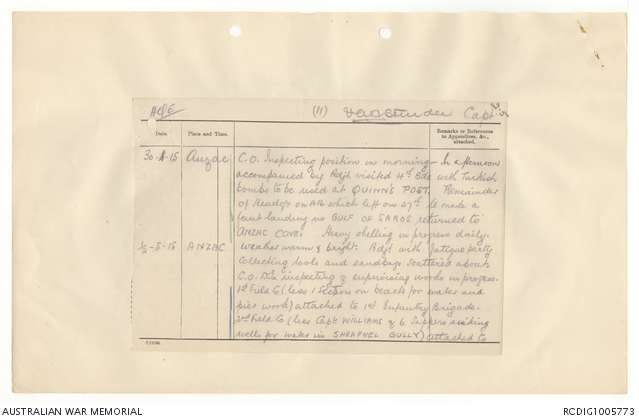 (11)
Capt
Date
Place and Time.
Remarks or References to Appendices, &c., attached.
30-4-15 Anzac C.O. Inspecting position in morning. In afternoon
accompanied by Adjt visited 4th Bde with Turkish
bombs to be used at QUINN'S POST. Remainder
of Headqrs on A16 which left on 27th to make a
feint landing in GULF OF SAROS returned to
ANZAC COVE. Heavy shelling in progress daily.
1-5-15 ANZAC Weather warm & bright. Adjt with fatigue party
collecting tools and sandbags scattered about.
C.O. inspecting & supervising works in progress.
1st Field Co (less 1 Section on beach for water and
pier work) attached to 1st Infantry Brigade.
2nd Field Co (less Capt WILLIAMS & 6 Sappers sinking
wells for water in SHRAPNEL GULLY) attached to
AUSTRALIAN WAR MEMORIAL
RCDIG1005773